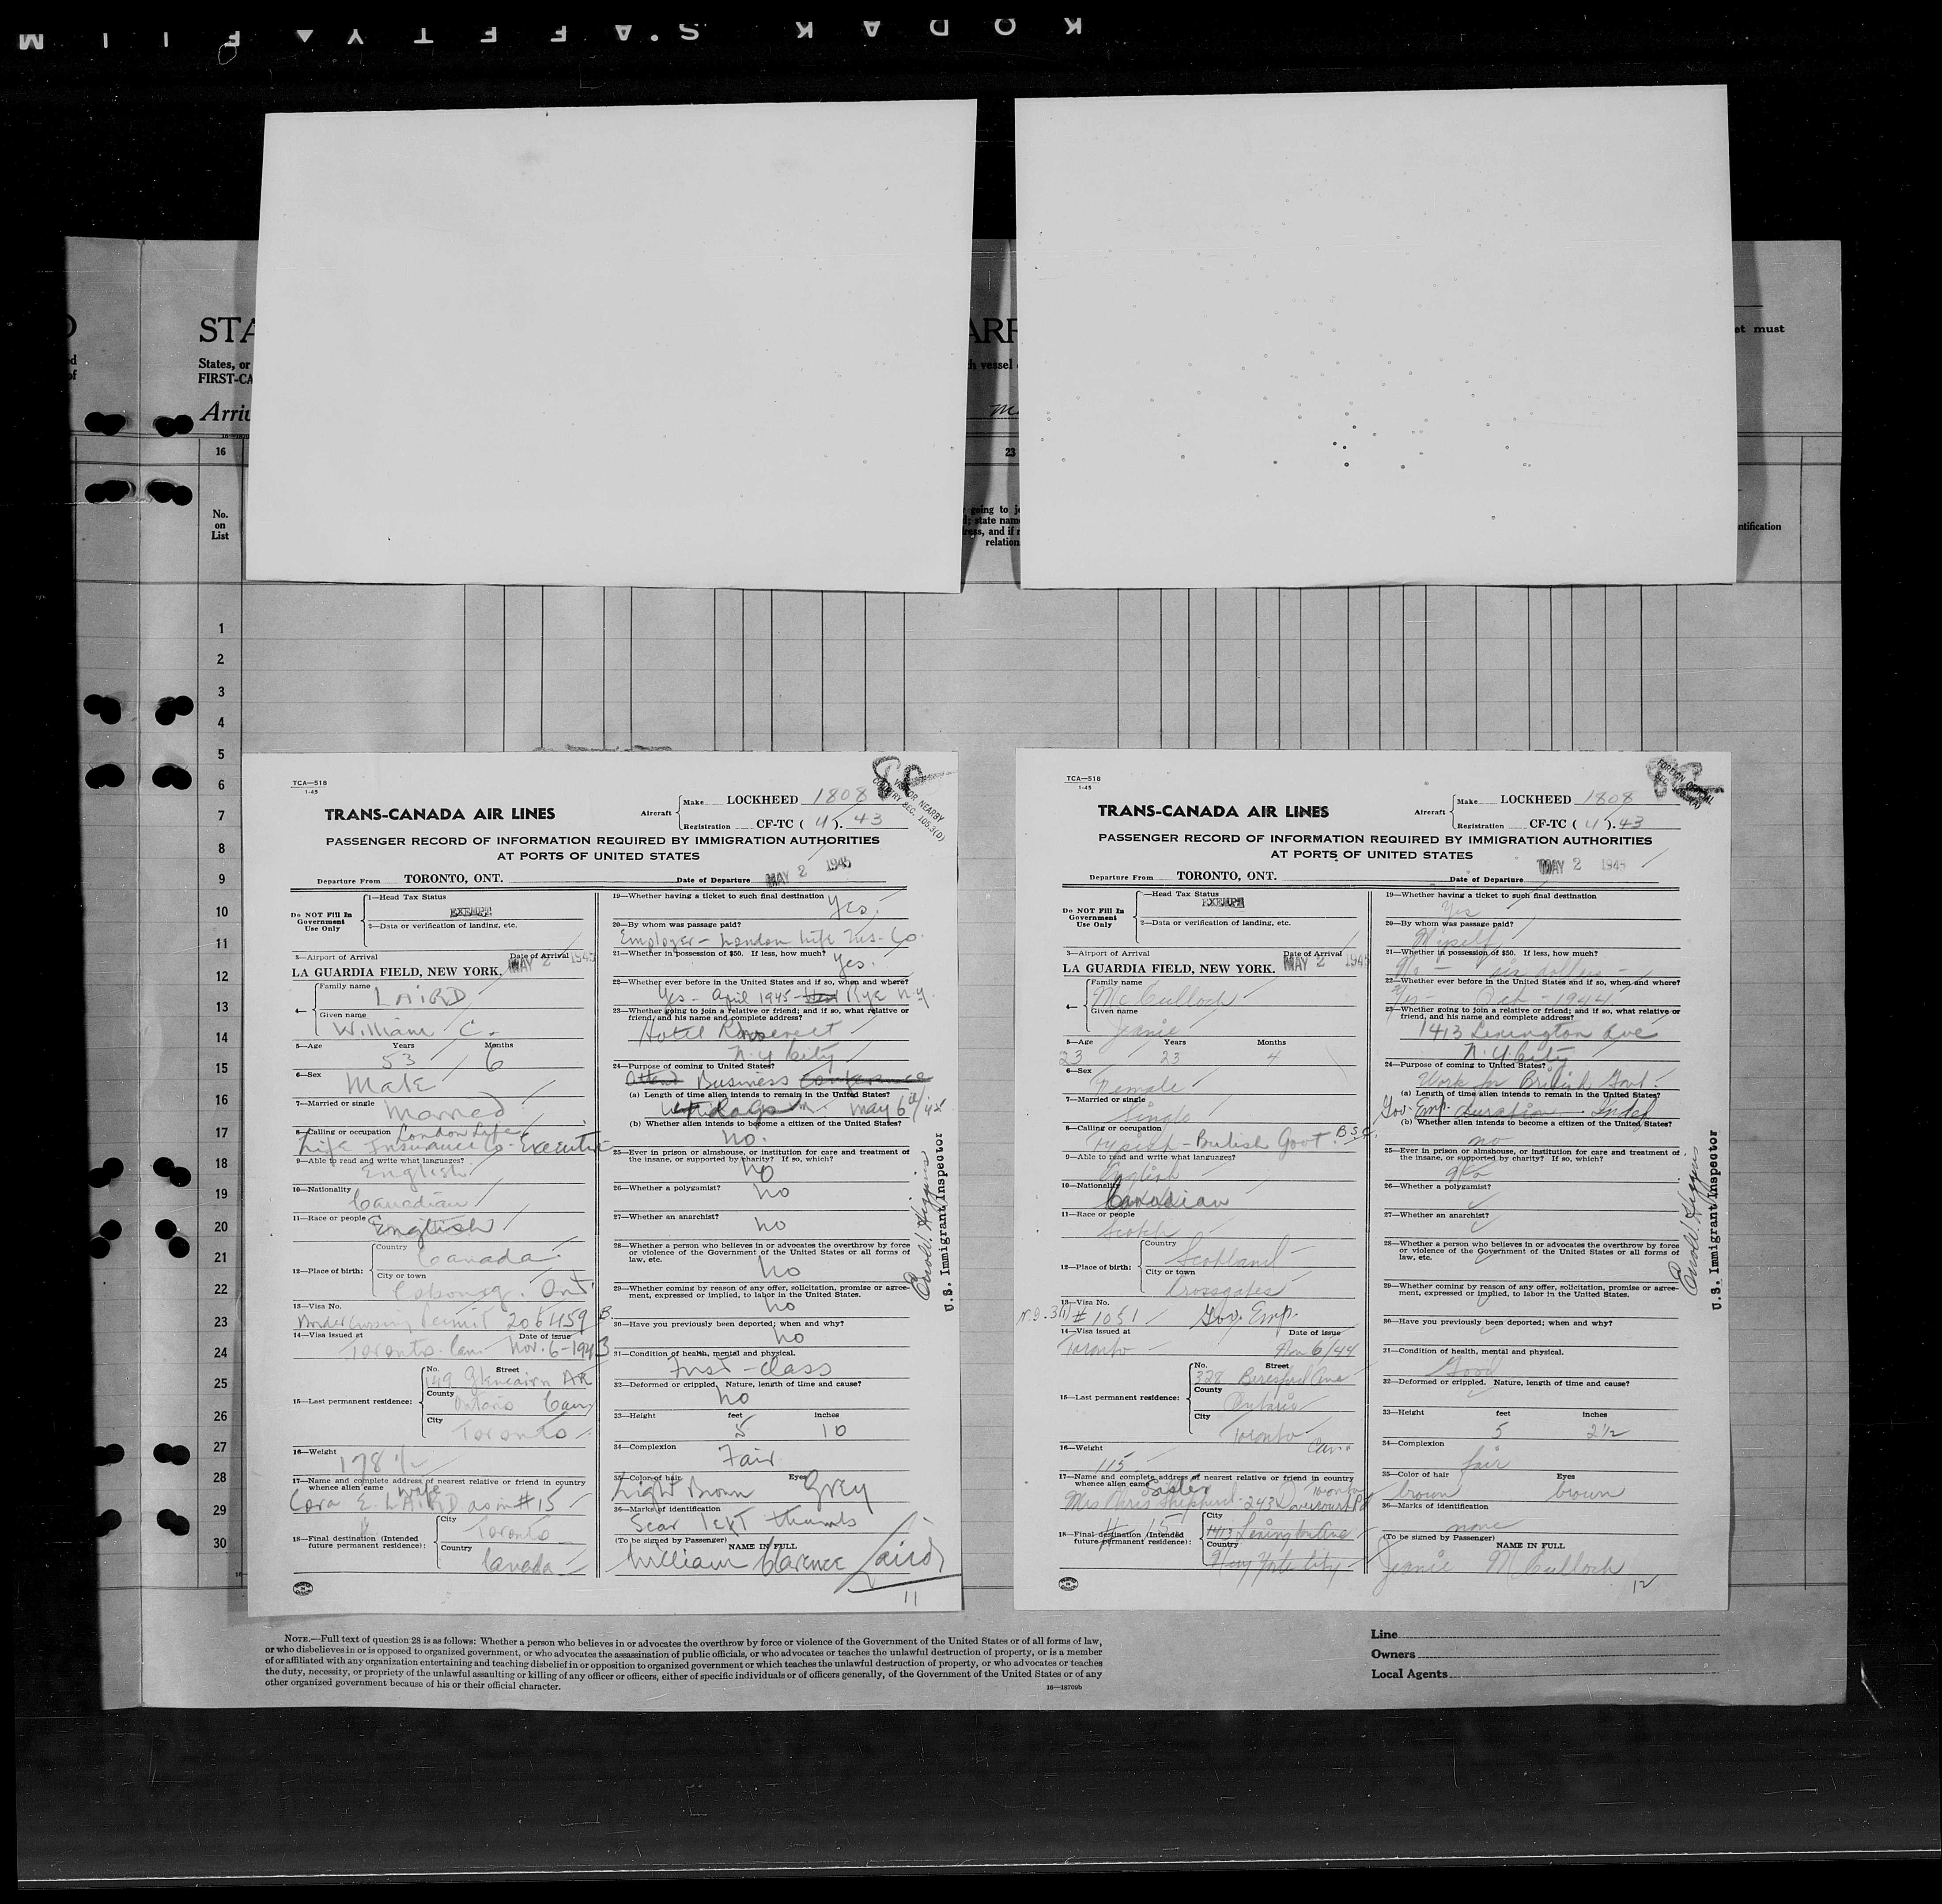 KODAK SAFETY FILM
STA
ARR
et must
States, or
FIRST-CA
h vessel
Arri
16
23
No.
on
List
going to j
; state nam
ress, and if
relation
ntification
1
2
3
4
5
6
7
8
9
10
11
12
13
14
15
16
17
18
19
20
21
22
23
24
25
26
27
28
29
30
TCA—518
1-45
TRANS-CANADA AIR LINES
Aircraft
Make LOCKHEED 1808
Registration CF-TC ( U ). 43
80
VISITOR NEARBY
COUNTRY SEC. 105.3(D)
PASSENGER RECORD OF INFORMATION REQUIRED BY IMMIGRATION AUTHORITIES
AT PORTS OF UNITED STATES
Departure From TORONTO, ONT. Date of Departure MAY 2 1945
Do NOT Fill In
Government
Use Only
1—Head Tax Status
EXEMPT
2—Data or verification of landing, etc.
3—Airport of Arrival Date of Arrival
LA GUARDIA FIELD, NEW YORK. MAY 2 1945
4— Family name LAIRD
Given name William C.
5—Age Years Months
53 6
6—Sex Male
7—Married or single Married
8—Calling or occupation London Life
Life Insurance Co - Executive
9—Able to read and write what languages?
English
10—Nationality
Canadian
11—Race or people English
12—Place of birth: Country Canada
City or town
Cobourg. Ont.
13—Visa No.
Border Crossing Permit 206459 B.
14—Visa issued at Date of issue
Toronto Can. Nov. 6-1943
15—Last permanent residence: No. Street
149 Glencairn Ave
County Ontario Can
City Toronto
16—Weight 178 1/2
17—Name and complete address of nearest relative or friend in country
whence alien came wife
Cora E. LAIRD as in # 15
18—Final destination (Intended
future permanent residence): City Toronto
Country
Canada
19—Whether having a ticket to such final destination Yes.
20—By whom was passage paid?
Employer - London Life Ins. Co.
21—Whether in possession of $50. If less, how much? Yes.
22—Whether ever before in the United States and if so, when and where?
Yes - April 1945 - Rye N.Y.
23—Whether going to join a relative or friend; and if so, what relative or
friend, and his name and complete address?
Hotel Roosevelt
N.Y. City
24—Purpose of coming to United States?
Attend Business Conference
(a) Length of time alien intends to remain in the United States?
May 6th/45
(b) Whether alien intends to become a citizen of the United States?
No.
25—Ever in prison or almshouse, or institution for care and treatment of
the insane, or supported by charity? If so, which?
No
26—Whether a polygamist? No
27—Whether an anarchist? No
28—Whether a person who believes in or advocates the overthrow by force
or violence of the Government of the United States or all forms of
law, etc.
No
29—Whether coming by reason of any offer, solicitation, promise or agree-
ment, expressed or implied, to labor in the United States.
No
30—Have you previously been deported; when and why?
No
31—Condition of health, mental and physical.
First-class
32—Deformed or crippled. Nature, length of time and cause?
No
33—Height feet inches
5 10
34—Complexion Fair
35—Color of hair Eyes
Light Brown Grey
36—Marks of identification
Scar left thumb
(To be signed by Passenger) NAME IN FULL
William Clarence Laird
11
U.S. Immigrant Inspector
TCA—518
1-45
TRANS-CANADA AIR LINES
Aircraft
Make LOCKHEED 1808
Registration CF-TC ( U ). 43
FOREIGN OFFICIAL
PASSENGER RECORD OF INFORMATION REQUIRED BY IMMIGRATION AUTHORITIES
AT PORTS OF UNITED STATES
Departure From TORONTO, ONT. Date of Departure MAY 2 1945
Do NOT Fill In
Government
Use Only
1—Head Tax Status
EXEMPT
2—Data or verification of landing, etc.
3—Airport of Arrival Date of Arrival
LA GUARDIA FIELD, NEW YORK. MAY 2 1945
4— Family name
McCulloch
Given name
Jeanie
5—Age Years Months
23 23 4
6—Sex
Female
7—Married or single
Single
8—Calling or occupation
Typist - British Govt. B.S.C.
9—Able to read and write what languages?
English
10—Nationality
Canadian
11—Race or people
Scotch
12—Place of birth: Country
Scotland
City or town
Crossgates
13—Visa No.
# 1051 Gov. Emp.
14—Visa issued at Date of issue
Toronto Nov 6/44
15—Last permanent residence: No. Street
328 Beresford Ave
County
Ontario
City
Toronto Can.
16—Weight
115
17—Name and complete address of nearest relative or friend in country
whence alien came Sister Toronto
Mrs Chris Shepherd - 243 Dovercourt Rd
18—Final destination (Intended
future permanent residence): City
1413 Lexington Ave
Country
New York City
# 15
19—Whether having a ticket to such final destination
Yes
20—By whom was passage paid?
Myself
21—Whether in possession of $50. If less, how much?
No - six dollars -
22—Whether ever before in the United States and if so, when and where?
Yes - Oct - 1944
23—Whether going to join a relative or friend; and if so, what relative or
friend, and his name and complete address?
1413 Lexington Ave
N.Y. City
24—Purpose of coming to United States?
Work for British Govt.
(a) Length of time alien intends to remain in the United States?
Gov. Emp. duration Indef
(b) Whether alien intends to become a citizen of the United States?
no
25—Ever in prison or almshouse, or institution for care and treatment of
the insane, or supported by charity? If so, which?
No
26—Whether a polygamist?
27—Whether an anarchist?
28—Whether a person who believes in or advocates the overthrow by force
or violence of the Government of the United States or all forms of
law, etc.
29—Whether coming by reason of any offer, solicitation, promise or agree-
ment, expressed or implied, to labor in the United States.
30—Have you previously been deported; when and why?
31—Condition of health, mental and physical.
Good
32—Deformed or crippled. Nature, length of time and cause?
33—Height feet inches
5 2 1/2
34—Complexion
fair
35—Color of hair Eyes
brown brown
36—Marks of identification
none
(To be signed by Passenger) NAME IN FULL
Jeanie McCulloch
12
U.S. Immigrant Inspector
NOTE.—Full text of question 28 is as follows: Whether a person who believes in or advocates the overthrow by force or violence of the Government of the United States or of all forms of law,
or who disbelieves in or is opposed to organized government, or who advocates the assassination of public officials, or who advocates or teaches the unlawful destruction of property, or is a member
of or affiliated with any organization entertaining and teaching disbelief in or opposition to organized government or which teaches the unlawful destruction of property, or who advocates or teaches
the duty, necessity, or propriety of the unlawful assaulting or killing of any officer or officers, either of specific individuals or of officers generally, of the Government of the United States or of any
other organized government because of his or their official character.
16—18709b
Line
Owners
Local Agents